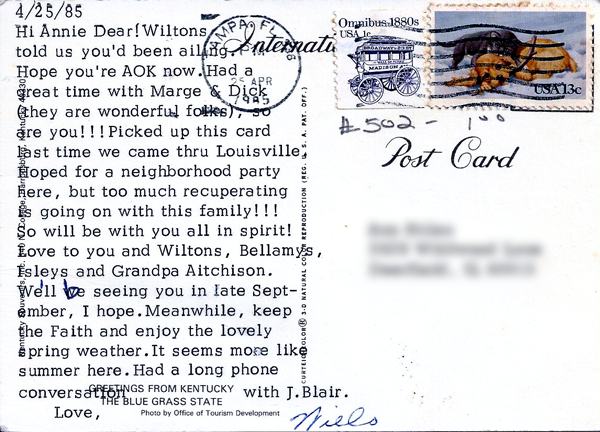 4/25/85
Hi Annie Dear! Wiltons
told us you'd been ailing.
Hope you're AOK now. Had a
great time with Marge & Dick
(they are wonderful folks), so
are you!!! Picked up this card
last time we came thru Louisville
Hoped for a neighborhood party
here, but too much recuperating
is going on with this family!!!
So will be with you all in spirit!
Love to you and Wiltons, Bellamys,
Isleys and Grandpa Aitchison.
We'll be seeing you in late Sept-
ember, I hope. Meanwhile, keep
the Faith and enjoy the lovely
spring weather. It seems more like
summer here. Had a long phone
conversation with J.Blair.
Love,
Niels
GREETINGS FROM KENTUCKY
THE BLUE GRASS STATE
Photo by Office of Tourism Development
TAMPA, FL 336
25 APR
1985
Omnibus 1880s
USA 1c
USA 13c
#502- 1 00
Post Card
3-D NATURAL COLOR REPRODUCTION (REG. U.S. PAT. OFF.)